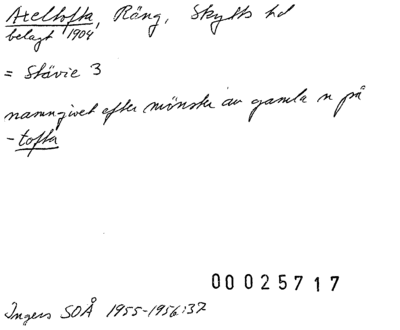 Axeltofta, Räng, Skytts hd
belagt 1904
= Stävie 3
namngivet efter mönster av gamla n på
-tofta
00025717
Ingers SOÅ 1955-1956:37